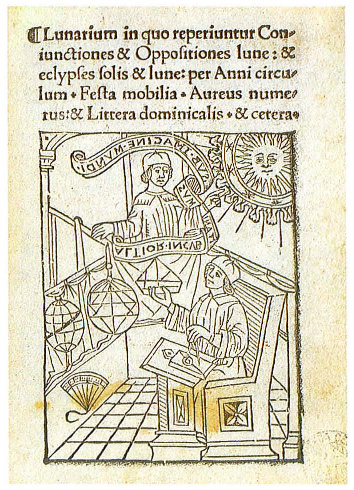 ¶Lunarium in quo reperiuntur Con⸗
iunctiones & Oppoſitiones lune: &
eclypſes ſolis & lune: per Anni circu⸗
lum • Feſta mobilia • Aureus nume⸗
rus: & Littera dominicalis • & cetera•
ALTIOR·INCVB
SVB·IMAGINE·MVNDI